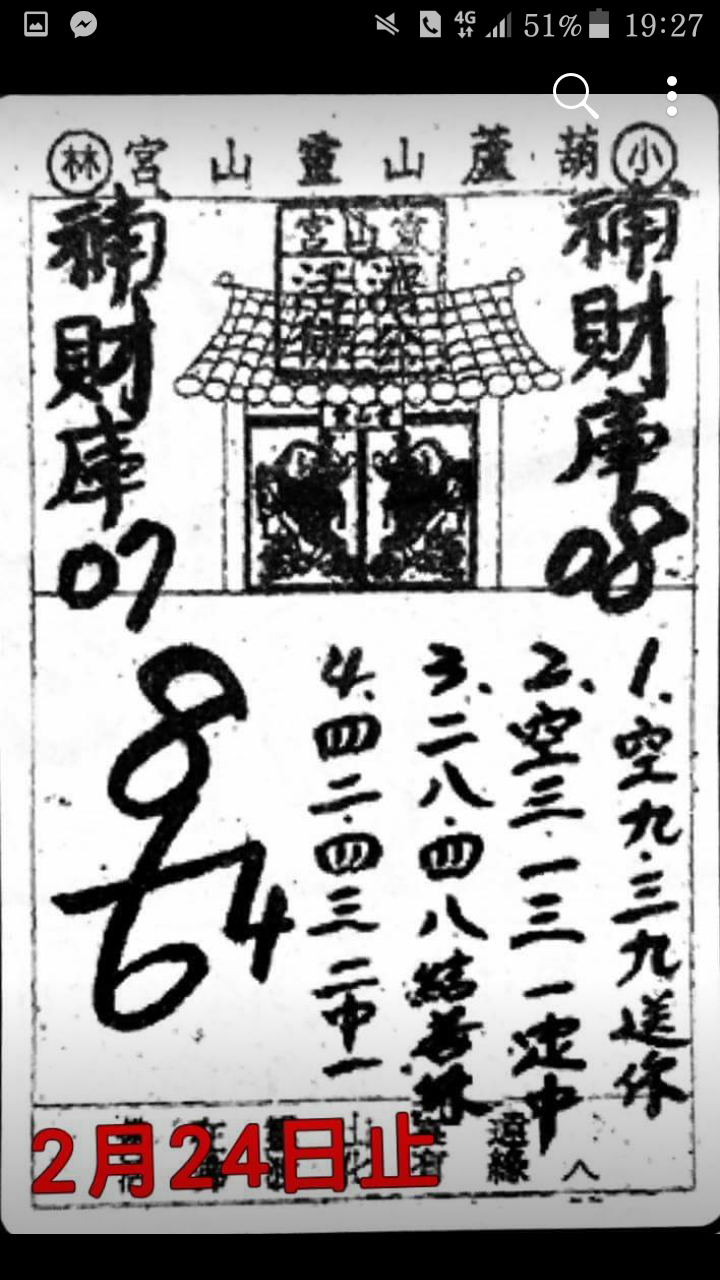 51% 19:27
4G
小 葫蘆山靈山宮 林
靈山宮
濟公
活佛
補財庫
08
補財庫
07
1.空九.三九送你
2.空三.一三一定中
3.二八.四八結善緣
4.四二.四三二中一
8
6
4
遠緣
八
2月24日止